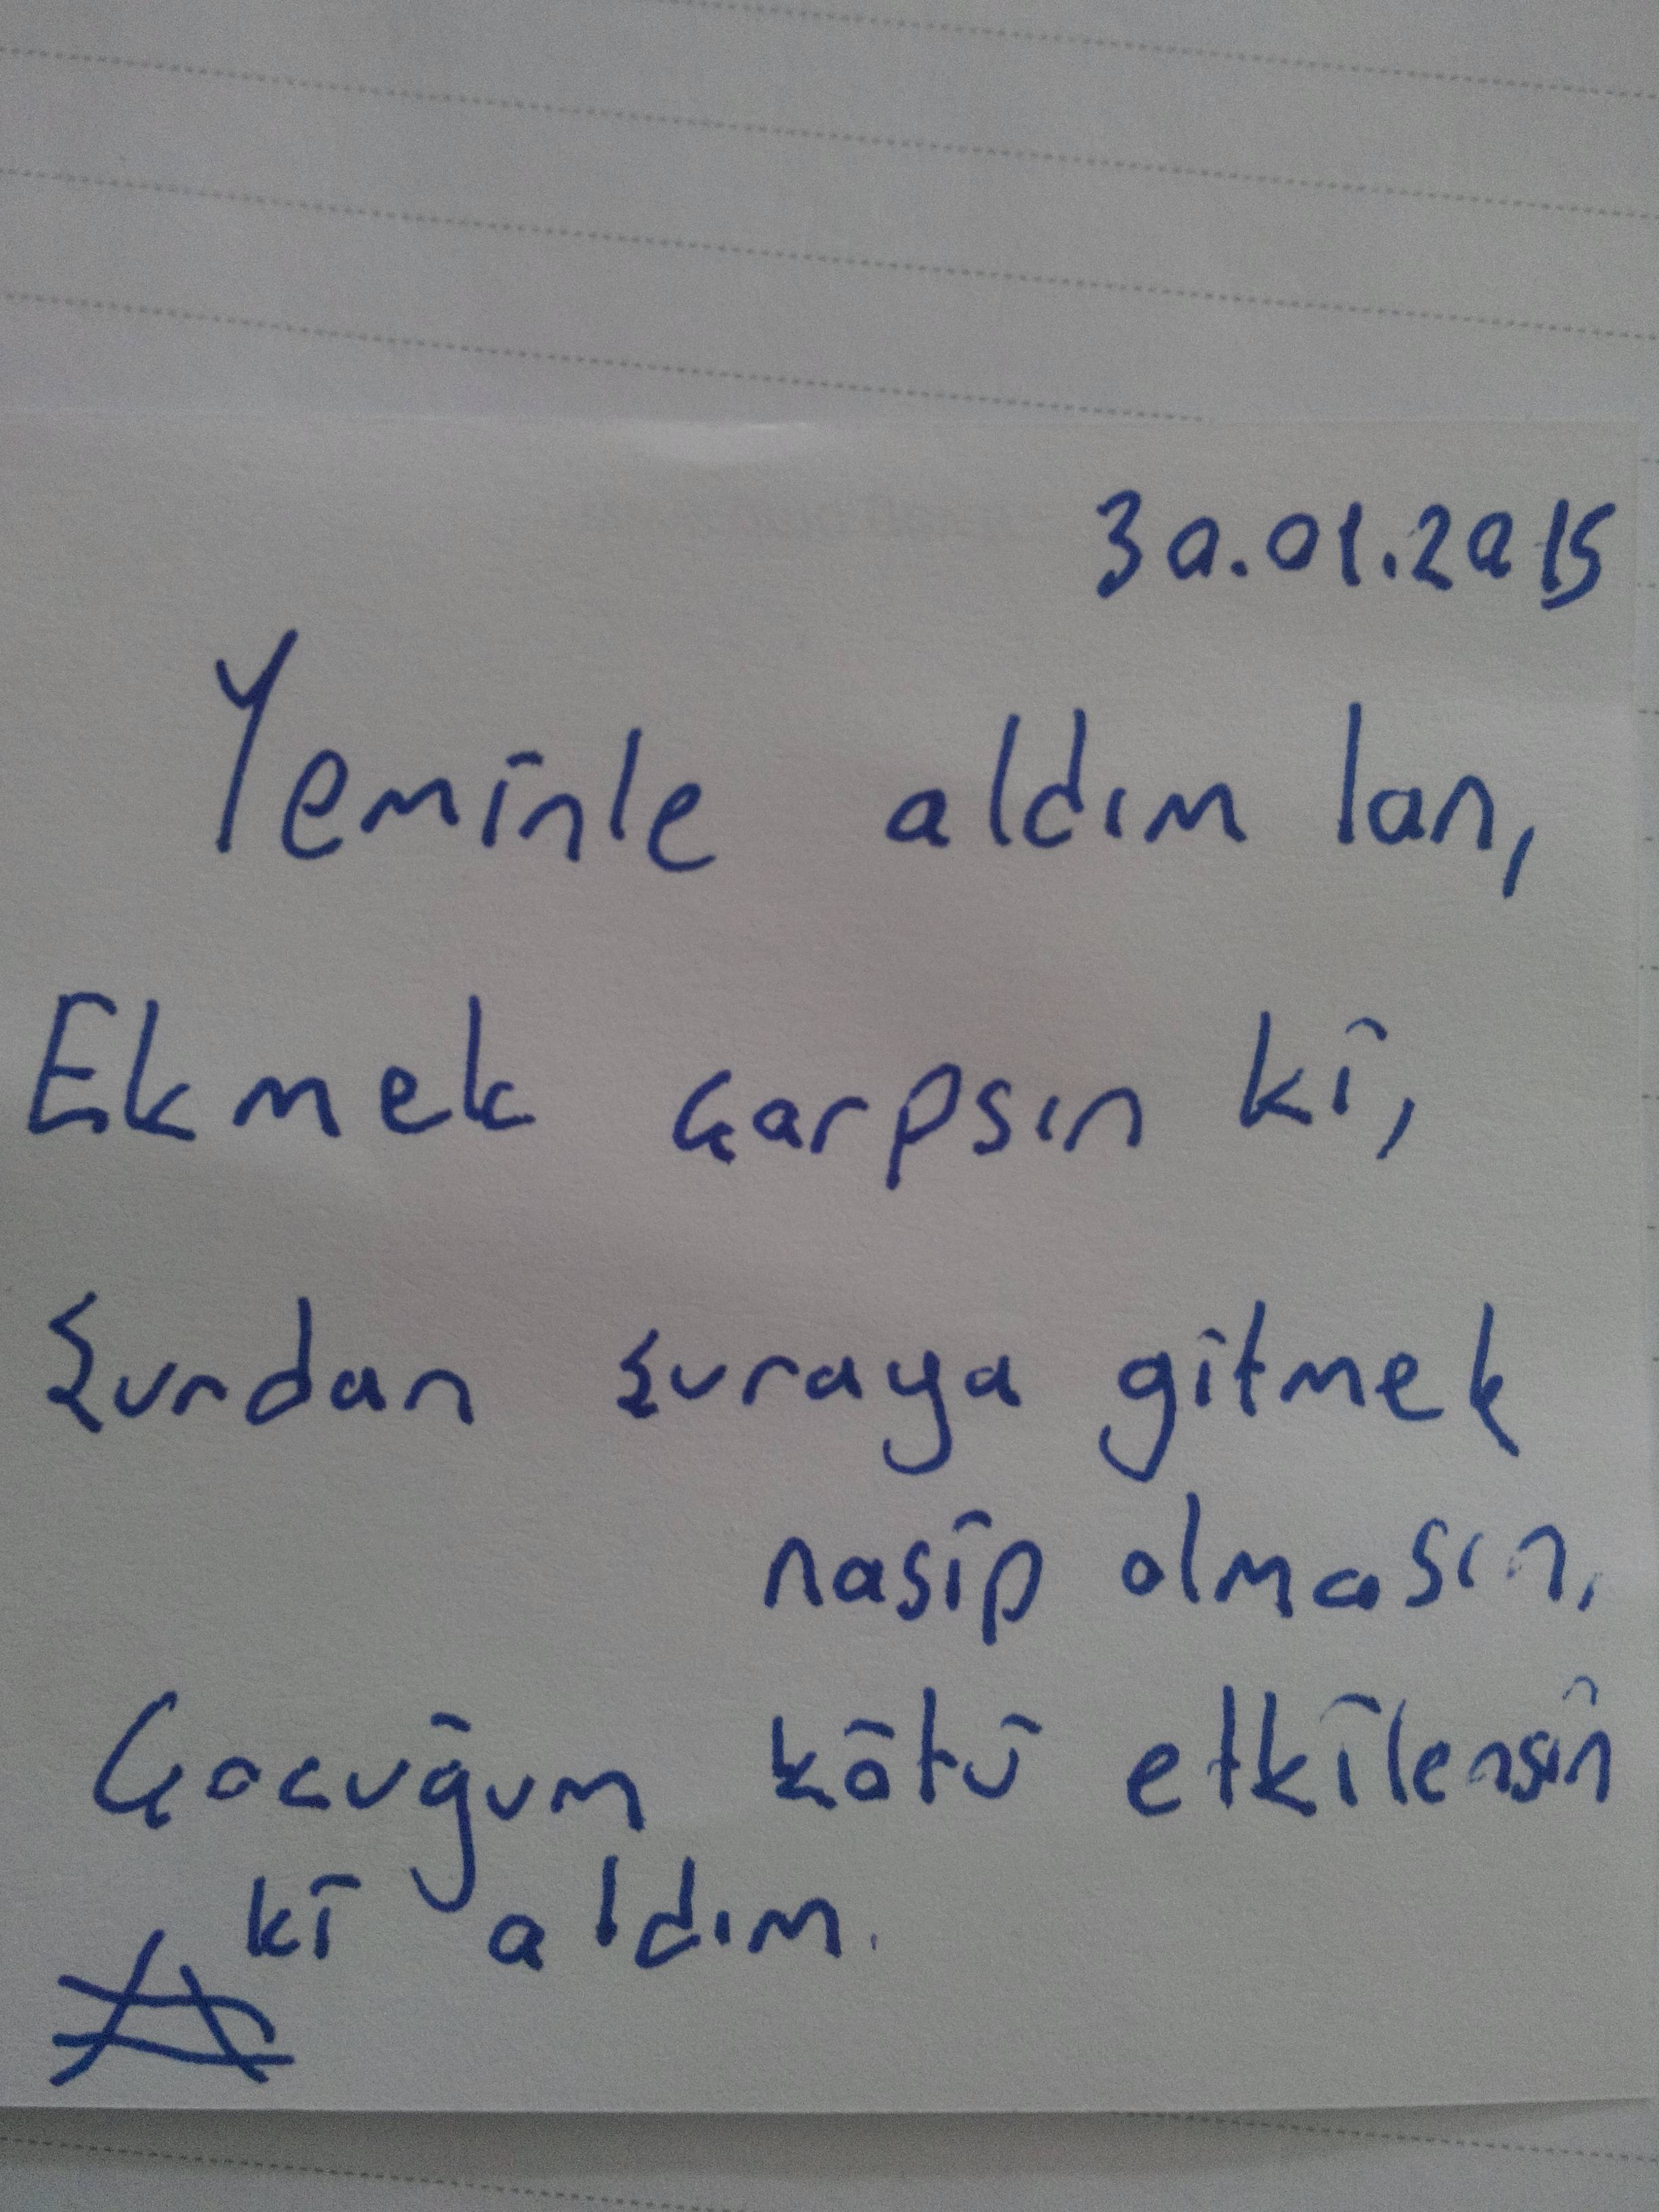 30.01.2015
Yeminle aldım lan,
Ekmek çarpsın ki,
Şurdan şuraya gitmek
nasip olmasın,
Çocuğum kötü etkilensin
ki aldım.